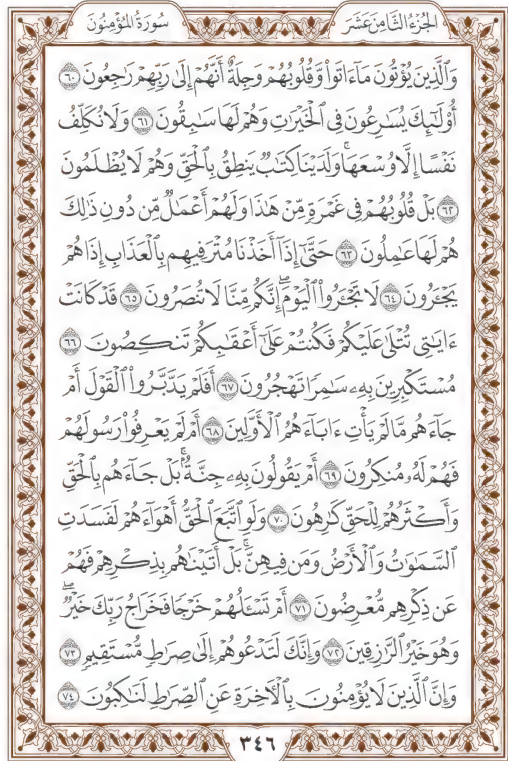 الجُزْءُ الثَّامِنَ عَشَرَ
سُورَةُ المُؤْمِنُونَ
وَٱلَّذِينَ يُؤْتُونَ مَآ ءَاتَوا۟ وَّقُلُوبُهُمْ وَجِلَةٌ أَنَّهُمْ إِلَىٰ رَبِّهِمْ رَٰجِعُونَ ٦٠
أُو۟لَـٰٓئِكَ يُسَـٰرِعُونَ فِى ٱلْخَيْرَٰتِ وَهُمْ لَهَا سَـٰبِقُونَ ٦١ وَلَا نُكَلِّفُ
نَفْسًا إِلَّا وُسْعَهَا ۖ وَلَدَيْنَا كِتَـٰبٌ يَنطِقُ بِٱلْحَقِّ وَهُمْ لَا يُظْلَمُونَ
٦٢ بَلْ قُلُوبُهُمْ فِى غَمْرَةٍ مِّنْ هَـٰذَا وَلَهُمْ أَعْمَـٰلٌ مِّن دُونِ ذَٰلِكَ
هُمْ لَهَا عَـٰمِلُونَ ٦٣ حَتَّىٰٓ إِذَآ أَخَذْنَا مُتْرَفِيهِم بِٱلْعَذَابِ إِذَا هُمْ
يَجْـَٔرُونَ ٦٤ لَا تَجْـَٔرُوا۟ ٱلْيَوْمَ ۖ إِنَّكُم مِّنَّا لَا تُنصَرُونَ ٦٥ قَدْ كَانَتْ
ءَايَـٰتِى تُتْلَىٰ عَلَيْكُمْ فَكُنتُمْ عَلَىٰٓ أَعْقَـٰبِكُمْ تَنكِصُونَ ٦٦
مُسْتَكْبِرِينَ بِهِۦ سَـٰمِرًا تَهْجُرُونَ ٦٧ أَفَلَمْ يَدَّبَّرُوا۟ ٱلْقَوْلَ أَمْ
جَآءَهُم مَّا لَمْ يَأْتِ ءَابَآءَهُمُ ٱلْأَوَّلِينَ ٦٨ أَمْ لَمْ يَعْرِفُوا۟ رَسُولَهُمْ
فَهُمْ لَهُۥ مُنكِرُونَ ٦٩ أَمْ يَقُولُونَ بِهِۦ جِنَّةٌۢ ۚ بَلْ جَآءَهُم بِٱلْحَقِّ
وَأَكْثَرُهُمْ لِلْحَقِّ كَـٰرِهُونَ ٧٠ وَلَوِ ٱتَّبَعَ ٱلْحَقُّ أَهْوَآءَهُمْ لَفَسَدَتِ
ٱلسَّمَـٰوَٰتُ وَٱلْأَرْضُ وَمَن فِيهِنَّ ۚ بَلْ أَتَيْنَـٰهُم بِذِكْرِهِمْ فَهُمْ
عَن ذِكْرِهِم مُّعْرِضُونَ ٧١ أَمْ تَسْـَٔلُهُمْ خَرْجًا فَخَرَاجُ رَبِّكَ خَيْرٌ ۖ
وَهُوَ خَيْرُ ٱلرَّٰزِقِينَ ٧٢ وَإِنَّكَ لَتَدْعُوهُمْ إِلَىٰ صِرَٰطٍ مُّسْتَقِيمٍ ٧٣
وَإِنَّ ٱلَّذِينَ لَا يُؤْمِنُونَ بِٱلْـَٔاخِرَةِ عَنِ ٱلصِّرَٰطِ لَنَـٰكِبُونَ ٧٤
٣٤٦